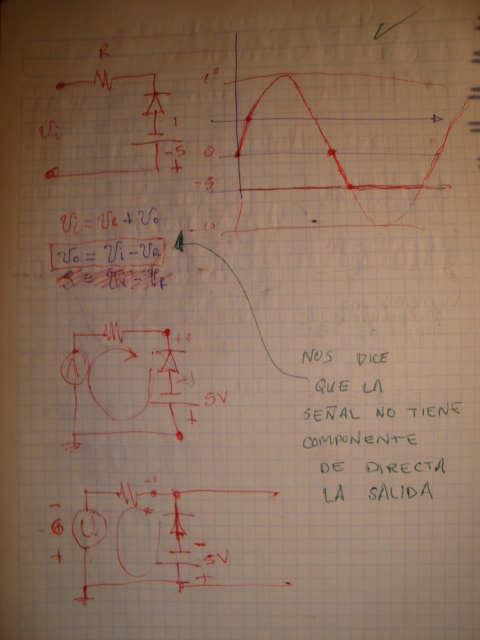 R
10
Vi
1
-5
+
0
-5
-10
Vi = VR + Vo
Vo = Vi - VR
NOS DICE
QUE LA
SEÑAL NO TIENE
COMPONENTE
DE DIRECTA
LA SALIDA
5V
+
-
+
-
5V
+